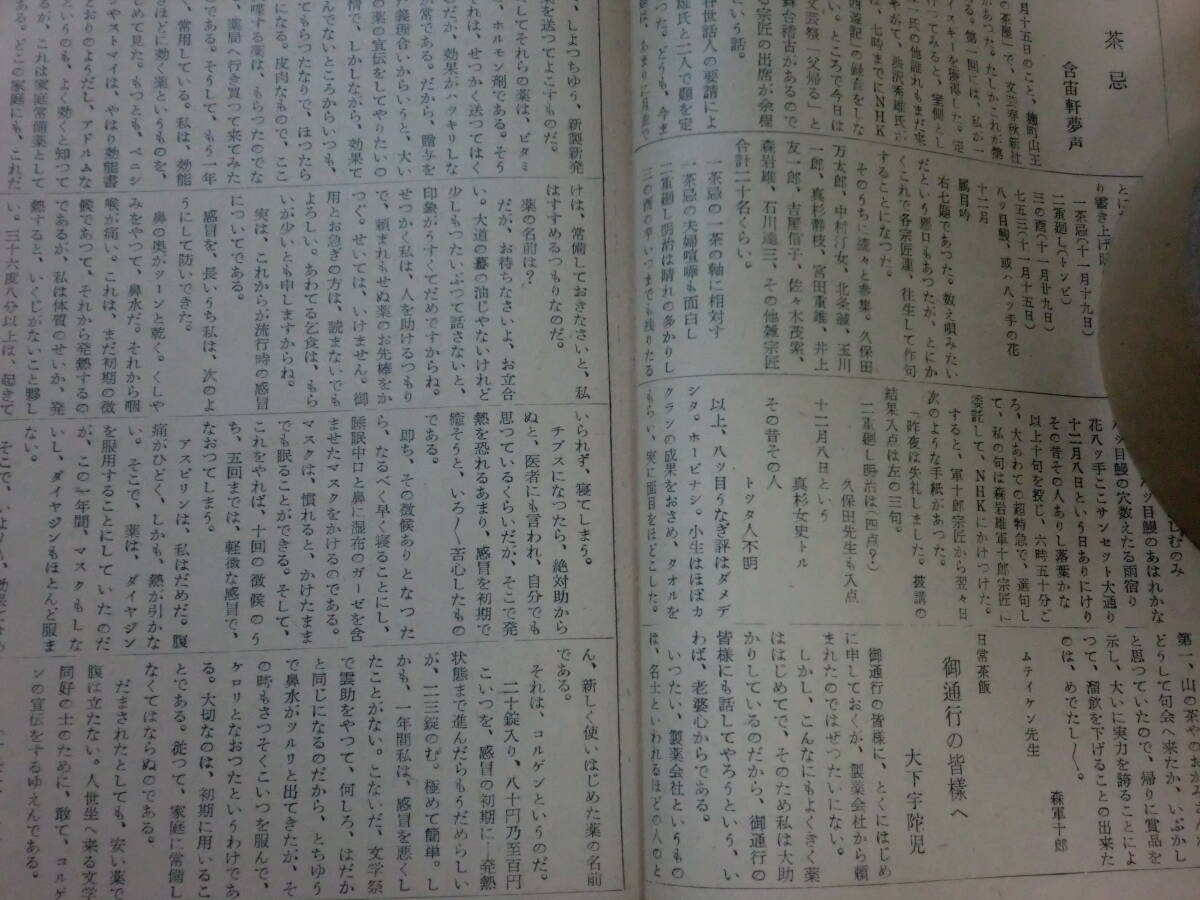 茶忌
含宙軒夢声
月十五日のこと、麹町山王
の茶屋」で、文芸春秋新社
があつた。たしかこれが第
イスキーを獲得した。定
行つてみると、堂側とし
る。第一囘には、私が一
氏の他誰れもまだ来
やがて、渋沢秀雄氏が
な、七時までにNHK
西遊記」の録音をしな
い。ところで今日は
文芸祭「父帰る」と
舞台稽古があるので
る宗匠の出席が余程
という話。
谷世話人の要請によ
雄氏と二人で題を定
一茶忌(十一月十九日)
二重廻し(トンビ)
三の酉(十一月廿九日)
七五三(十一月十五日)
八ッ目鰻、或ハ八ッ手の花
十二月
属目吟
右七題であつた。数え唄みたい
だという悪口もあつたが、とにか
くこれで各宗匠達、往生して作句
することになつた。
そのうちに続々と参集。久保田
万太郎、中村汀女、北条誠、玉川
一郎、真杉静枝、宮田重雄、井上
友一郎、吉屋信子、佐々木茂索、
森岩雄、石川達三、その他雑宗匠
合計二十名くらい。
一茶忌の一茶の軸に相対す
一茶忌の夫婦喧嘩も面白し
二重廻し明治は晴れの多かりし
三の酉の辛いつまでも残りたる
八ッ目鰻のあはれかな
八ッ目鰻の穴数えたる雨宿り
花八ッ手ここサンセット大通り
十二月八日という日ありにけり
その昔その人ありし落葉かな
以上十句を投じ、六時五十分ご
ろ、大あわての超特急で、選句し
て、私の句は森岩雄軍十郎宗匠に
委託して、NHKにかけつけた。
すると、軍十郎宗匠から翌々日
次のような手紙があつた。
「昨夜は失礼しました。披講の
結果入点は左の三句。
二重廻し明治は(四点?)
久保田先生も入点
十二月八日という
真杉女史トル
その昔その人
トッタ人不明
以上、八ッ目うなぎ評はダメデ
シタ。ホービナシ。小生はほぼカ
クランの成果をおさめ、タオルを
もらい、実に面目をほどこした。
どうして句会へ来たか、いぶかし
と思つていたので、帰りに賞品を
示し、大いに実力を誇ることによ
つて、溜飲を下げることの出来た
のは、めでたし〱。
森軍十郎
ムテイケン先生
日常茶飯
御通行の皆様へ
大下宇陀児
御通行の皆様に、とくにはじめ
に申しておくが、製薬会社から頼
まれたのではぜつたいにない。
しかし、こんなにもよくきく薬
ははじめてで、そのため私は大助
かりしているのだから、御通行の
皆様にも話してやろうという、い
わば、老婆心からである。
いつたい、製薬会社というもの
は、名士といわれるほどの人のと
、しよつちゆう、新製新発
を送つてよこすものだ。
してそれらの薬は、ビタミ
、ホルモン剤である。そう
れは、せつかく送つてはく
だが、効果がハッキリしな
が常である。だから、贈与を
だ義理合いからいうと、大い
の薬の宣伝をしてやりたいの
情で、しかしながら、効果て
んでないところからいつも、
てもらつたなりで、ほつたら
こである。皮肉なもので、ここ
噂する薬は、もらつたのでな
、薬局へ行き買つて来てみた
である。そうして、もう一年
、常用している。私は、効能
きほどに効く薬というものを、
じめて見た。もつとも、ペニシ
やストマイは、やはり効能書
どおりのようだし、アドルムな
というのも、よく効くと知つて
るが、これは家庭常備薬として
ある。どこの家庭にも、これだ
けは、常備しておきなさいと、私
はすすめるつもりなのだ。
薬の名前は?
だが、お待ちなさいよ、お立合
い。大道の蟇の油じやないけれど
少しもつたいぶつて話さないと、
印象がうすくてだめですからね。
せつかく私は、人を助けるつもり
で、頼まれもせぬ薬のお先棒をか
つぐ。せいては、いけません。御
用とお急ぎの方は、読まないでも
よろしい。あわてる乞食は、もら
いが少いとも申しますからね。
実は、これからが流行時の感冒
についてである。
感冒を、長いうち私は、次のよ
うにして防いできた。
鼻の奥がツーンと乾く。くしや
みをやつて、鼻水だ。それから咽
喉が痛い。これは、まだ初期の徴
候であつて、それから発熱するの
であるが、私は体質のせいか、発
熱すると、いくじがないこと夥し
い。三十六度八分以上は、起きて
いられず、寝てしまう。
チブスになつたら、絶対助から
ぬと、医者にも言われ、自分でも
思つているくらいだが、そこで発
熱を恐れるあまり、感冒を初期で
癒そうと、いろ〱苦心したもの
である。
即ち、その徴候ありとなつた
ら、なるべく早く寝ることにし、
睡眠中口と鼻に湿布のガーゼを含
ませたマスクをかけるのである。
マスクは、慣れると、かけたまま
でも眠ることができる。そして、
これをやれば、十回の徴候のう
ち、五回までは、軽微な感冒で、
なおつてしまう。
アスピリンは、私はだめだ。腹
痛がひどく、しかも、熱が引かな
い。そこで、薬は、ダイヤジン
を服用することにしていたのだ
が、この一年間、マスクもしな
いし、ダイヤジンもほとんど服ま
ない。
そこで、いよ〱、効果てきめ
ん、新しく使いはじめた薬の名前
である。
それは、コルゲンというのだ。
二十錠入り、八十円乃至百円
こいつを、感冒の初期に――発熱
状態まで進んだらもうだめらしい
が、一二三錠のむ。極めて簡単。し
かも、一年間私は、感冒を悪くし
たことがない。こないだ、文学祭
で雲助をやつて、何しろ、はだか
と同じになるのだから、とちゆう
で鼻水がツルリと出てきたが、そ
の時もさつそくこいつを服んで、
ケロリとなおつたというわけであ
る。大切なのは、初期に用いるこ
とである。従つて、家庭に常備し
なくてはならぬのである。
だまされたとしても、安い薬で
腹は立たない。人世坐へ来る文学
同好の士のために、敢て、コルゲ
ンの宣伝をするゆえんである。